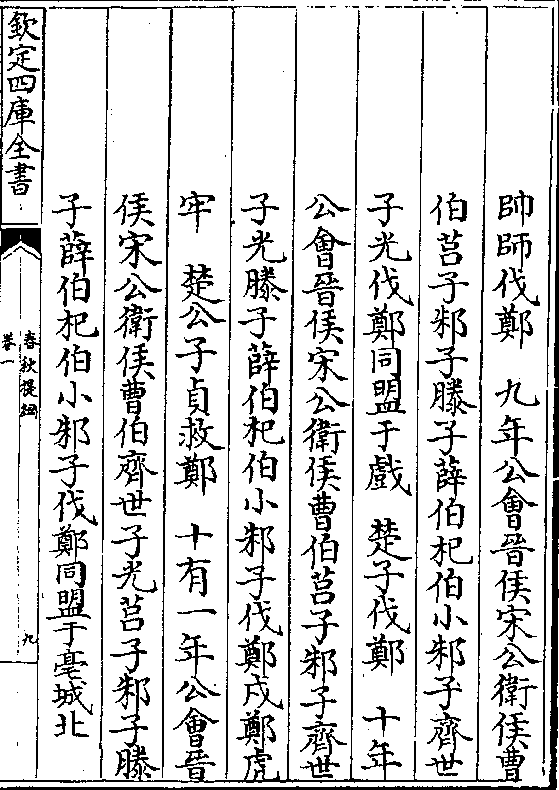 帥師伐鄭　九年公會晉侯宋公衛侯曹
伯莒子邾子滕子薛伯杞伯小邾子齊世
子光伐鄭同盟于戲　楚子伐鄭　十年
公會晉侯宋公衛侯曹伯莒子邾子齊世
子光滕子薛伯杞伯小邾子伐鄭戍鄭虎
牢　楚公子貞救鄭　十有一年公會晉
侯宋公衛侯曹伯齊世子光莒子邾子滕
子薛伯杞伯小邾子伐鄭同盟于亳城北
欽定四庫全書
春秋提綱
卷一
九